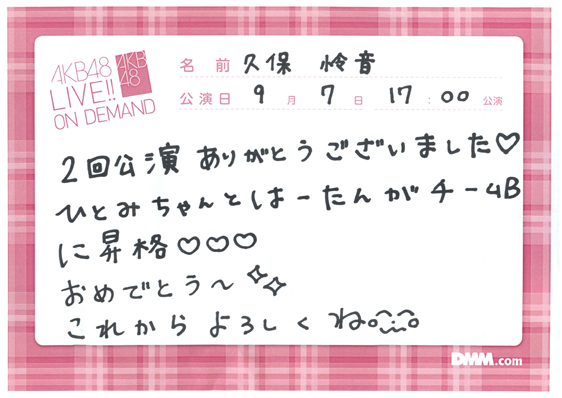 AKB48
LIVE!!
ON DEMAND
AKB
48
名 前 久保 怜音
公演日 9 月 7 日 17 : 00 公演
2回公演 ありがとうございました♡
ひとみちゃんとはーたんがチームB
に昇格♡♡♡
おめでとう〜
これから よろしく ね
DMM.com